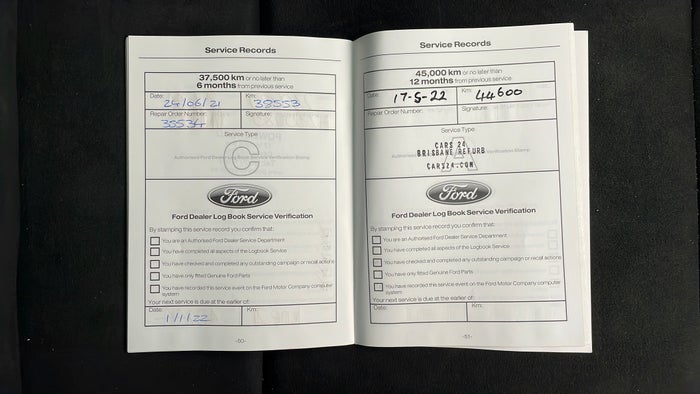 Service Records
37,500 km or no later than
6 months from previous service
Date: 24/06/21 Km: 38553
Repair Order Number: 38534 Signature:
Service Type
C
Authorised Ford Dealer Log Book Service Verification Stamp
Ford
Ford Dealer Log Book Service Verification
By stamping this service record you confirm that:
You are an Authorised Ford Dealer Service Department
You have completed all aspects of the Logbook Service
You have checked and completed any outstanding campaign or recall actions
You have only fitted Genuine Ford Parts
You have recorded this service event on the Ford Motor Company computer
system
Your next service is due at the earlier of:
Date: 1/1/22 Km:
-50-
Service Records
45,000 km or no later than
12 months from previous service
Date: 17-5-22 Km: 44600
Repair Order Number: Signature:
Service Type
A
CARS 24
BRISBANE REFURB
CARS24.COM
Ford
Ford Dealer Log Book Service Verification
By stamping this service record you confirm that:
You are an Authorised Ford Dealer Service Department
You have completed all aspects of the Logbook Service
You have checked and completed any outstanding campaign or recall actions
You have only fitted Genuine Ford Parts
You have recorded this service event on the Ford Motor Company computer
system
Your next service is due at the earlier of:
Date: Km:
-51-